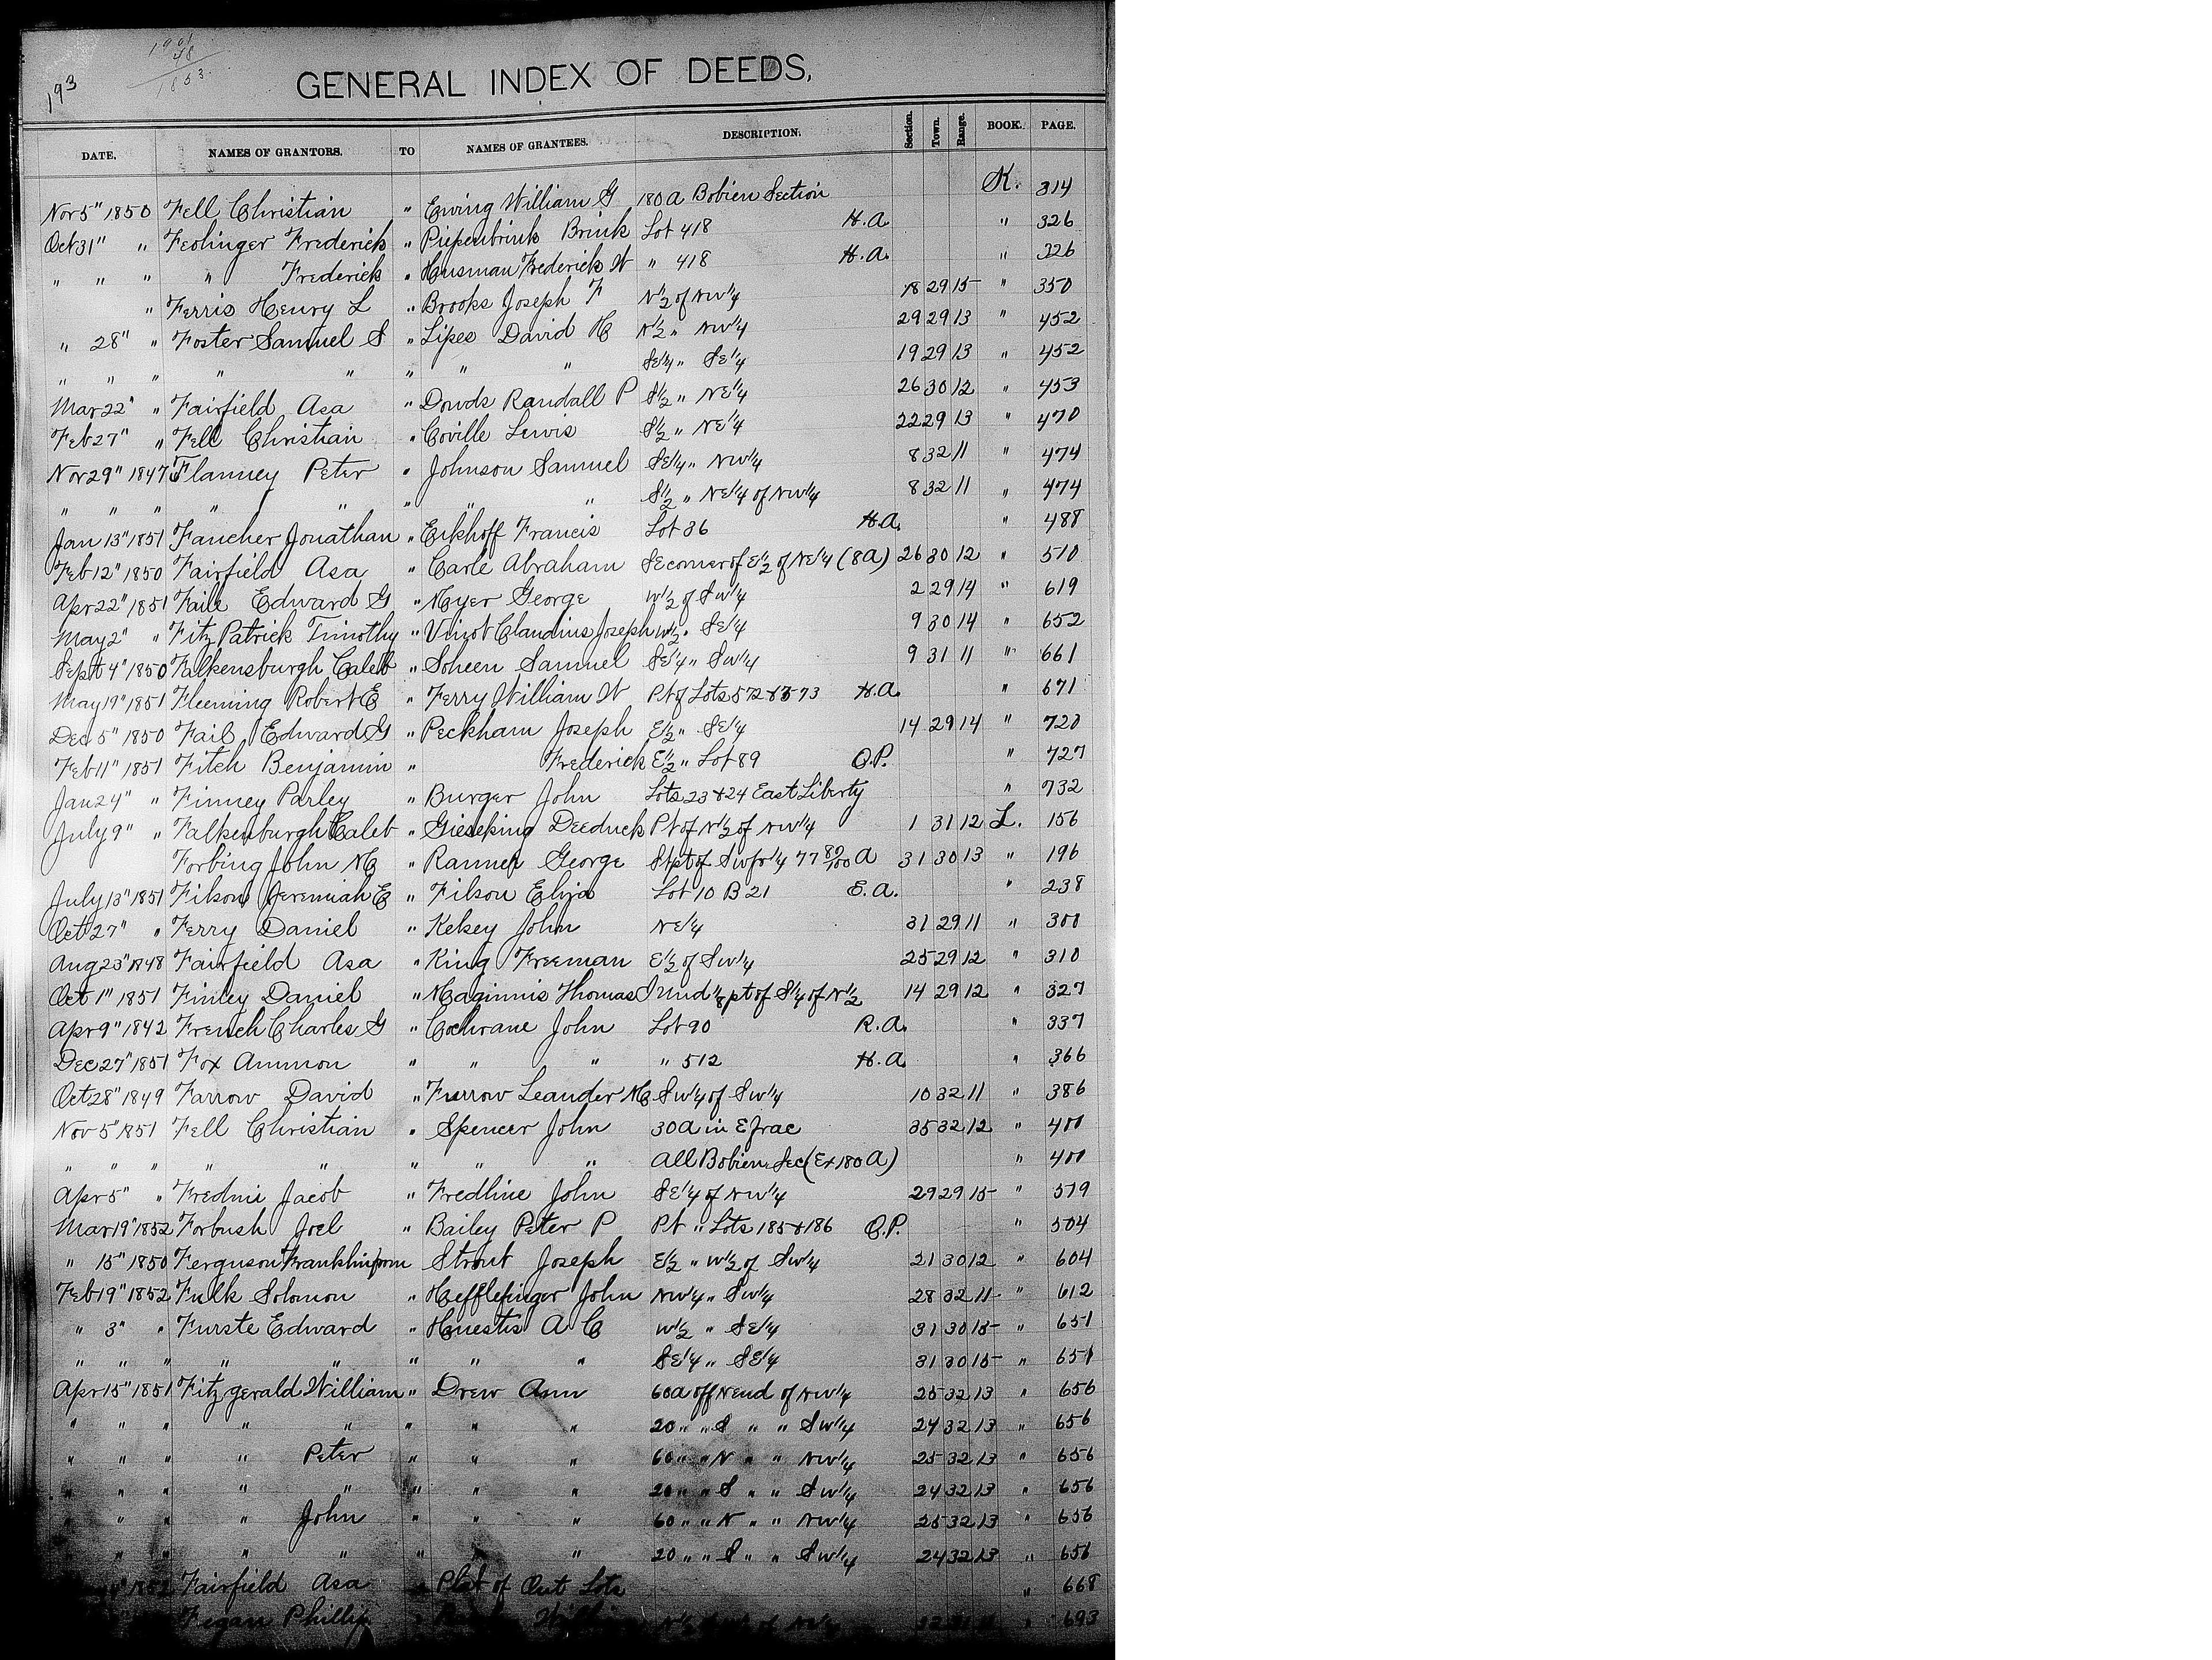 193
1901
48
1853
GENERAL INDEX OF DEEDS.
DATE. NAMES OF GRANTORS. TO NAMES OF GRANTEES. DESCRIPTION. Section. Town. Range. BOOK. PAGE.
Nov 5" 1850 Fell Christian " Ewing William G 180 a Bobien Section K. 314
Oct 31" " Feolinger Frederick " Piepenbrink Brink Lot 418 H.a. " 326
" " " " Frederick " Husman Frederick W " 418 H.a. " 326
" Ferris Henry L " Brooks Joseph F N½ of NW¼ 18 29 15 " 350
" 28" " Foster Samuel S " Lipes David H N½ " NW¼ 29 29 13 " 452
" " " " " " " " SE¼ " SE¼ 19 29 13 " 452
Mar 22" " Fairfield Asa " Dowds Randall P S½ " NE¼ 26 30 12 " 453
Feb 27" " Fell Christian " Coville Lewis S½ " NE¼ 22 29 13 " 470
Nov 29" 1847 Flanney Peter " Johnson Samuel SE¼ " NW¼ 8 32 11 " 474
" " " " " " " " S½ " NE¼ of NW¼ 8 32 11 " 474
Jan 13" 1851 Faucher Jonathan " Eikhoff Francis Lot 36 H.a. " 488
Feb 12" 1850 Fairfield Asa " Carle Abraham SE corner of E½ of NE¼ (8a) 26 30 12 " 510
Apr 22" 1851 Faile Edward G " Myer George W½ of SW¼ 2 29 14 " 619
May 2" " FitzPatrick Timothy " Vizot Claudius Joseph W½ " SE¼ 9 30 14 " 652
Sept 4" 1850 Falkensburgh Caleb " Soheen Samuel SE¼ " SW¼ 9 31 11 " 661
May 19" 1851 Fleeming Robert E " Ferry William W Pt of Lots 572 & 573 H.a. " 671
Dec 5" 1850 Fail Edward G " Peckham Joseph E½ " SE¼ 14 29 14 " 720
Feb 11" 1851 Fitch Benjamin " Frederick E½ " Lot 89 O.P. " 727
Jan 24" " Finney Parley " Burger John Lots 23 & 24 East Liberty " 732
July 9" " Falkenburgh Caleb " Gieseking Deedrick Pt of N½ of NW¼ 1 31 12 L. 156
Forbing John M " Ranner George S pt of SW fr ¼ 77 80/100 a 31 30 13 " 196
July 13" 1851 Filson Jeremiah E " Filson Eliza Lot 10 B 21 E.a. " 238
Oct 27" " Ferry Daniel " Kelsey John NE¼ 31 29 11 " 300
Aug 23" 1848 Fairfield Asa " King Freeman E½ of SW¼ 25 29 12 " 310
Oct 1" 1851 Finley Daniel " Maginnis Thomas J Und ⅛ pt of S¼ of N½ 14 29 12 " 327
Apr 9" 1842 French Charles G " Cochrane John Lot 90 R.a. " 337
Dec 27" 1851 Fox Ammon " " " " 512 H.a. " 366
Oct 28" 1849 Farrow David " Furrow Leander M SW¼ of SW¼ 10 32 11 " 386
Nov 5" 1851 Fell Christian " Spencer John 30a in E frac 35 32 12 " 400
" " " " " " " " All Bobien Sec (Ex 180 a) " 400
Apr 5" " Fredmi Jacob " Fredline John SE¼ of NW¼ 29 29 15 " 579
Mar 19" 1852 Forbush Joel " Bailey Peter P Pt " Lots 185 & 186 O.P. " 504
" 15" 1850 Ferguson Franklin from Strout Joseph E½ " W½ of SW¼ 21 30 12 " 604
Feb 19" 1852 Fulk Solomon " Hefflefinger John NW¼ " SW¼ 28 32 11 " 612
" 3" " Furste Edward " Huestis A C W½ " SE¼ 31 30 15 " 651
" " " " " " " " SE¼ " SE¼ 31 30 15 " 651
Apr 15" 1851 Fitzgerald William " Drew Ann 60a off N end of NW¼ 25 32 13 " 656
" " " " " " " " 20 " " S " " SW¼ 24 32 13 " 656
" " " " Peter " " " 60 " " N " " NW¼ 25 32 13 " 656
" " " " " " " " 20 " " S " " SW¼ 24 32 13 " 656
" " " " John " " " 60 " " N " " NW¼ 25 32 13 " 656
" " " " " " " " 20 " " S " " SW¼ 24 32 13 " 656
1852 Fairfield Asa " Plat of Out Lots " 668
Fegan Phillip " 693